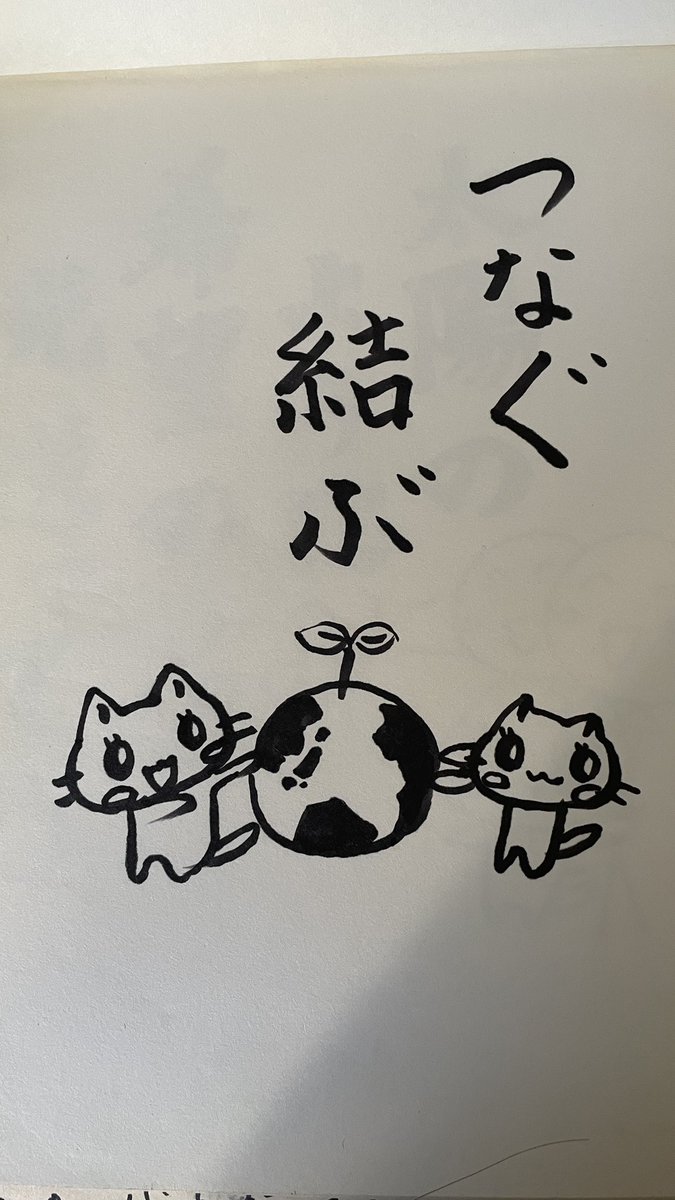 つなぐ
結ぶ